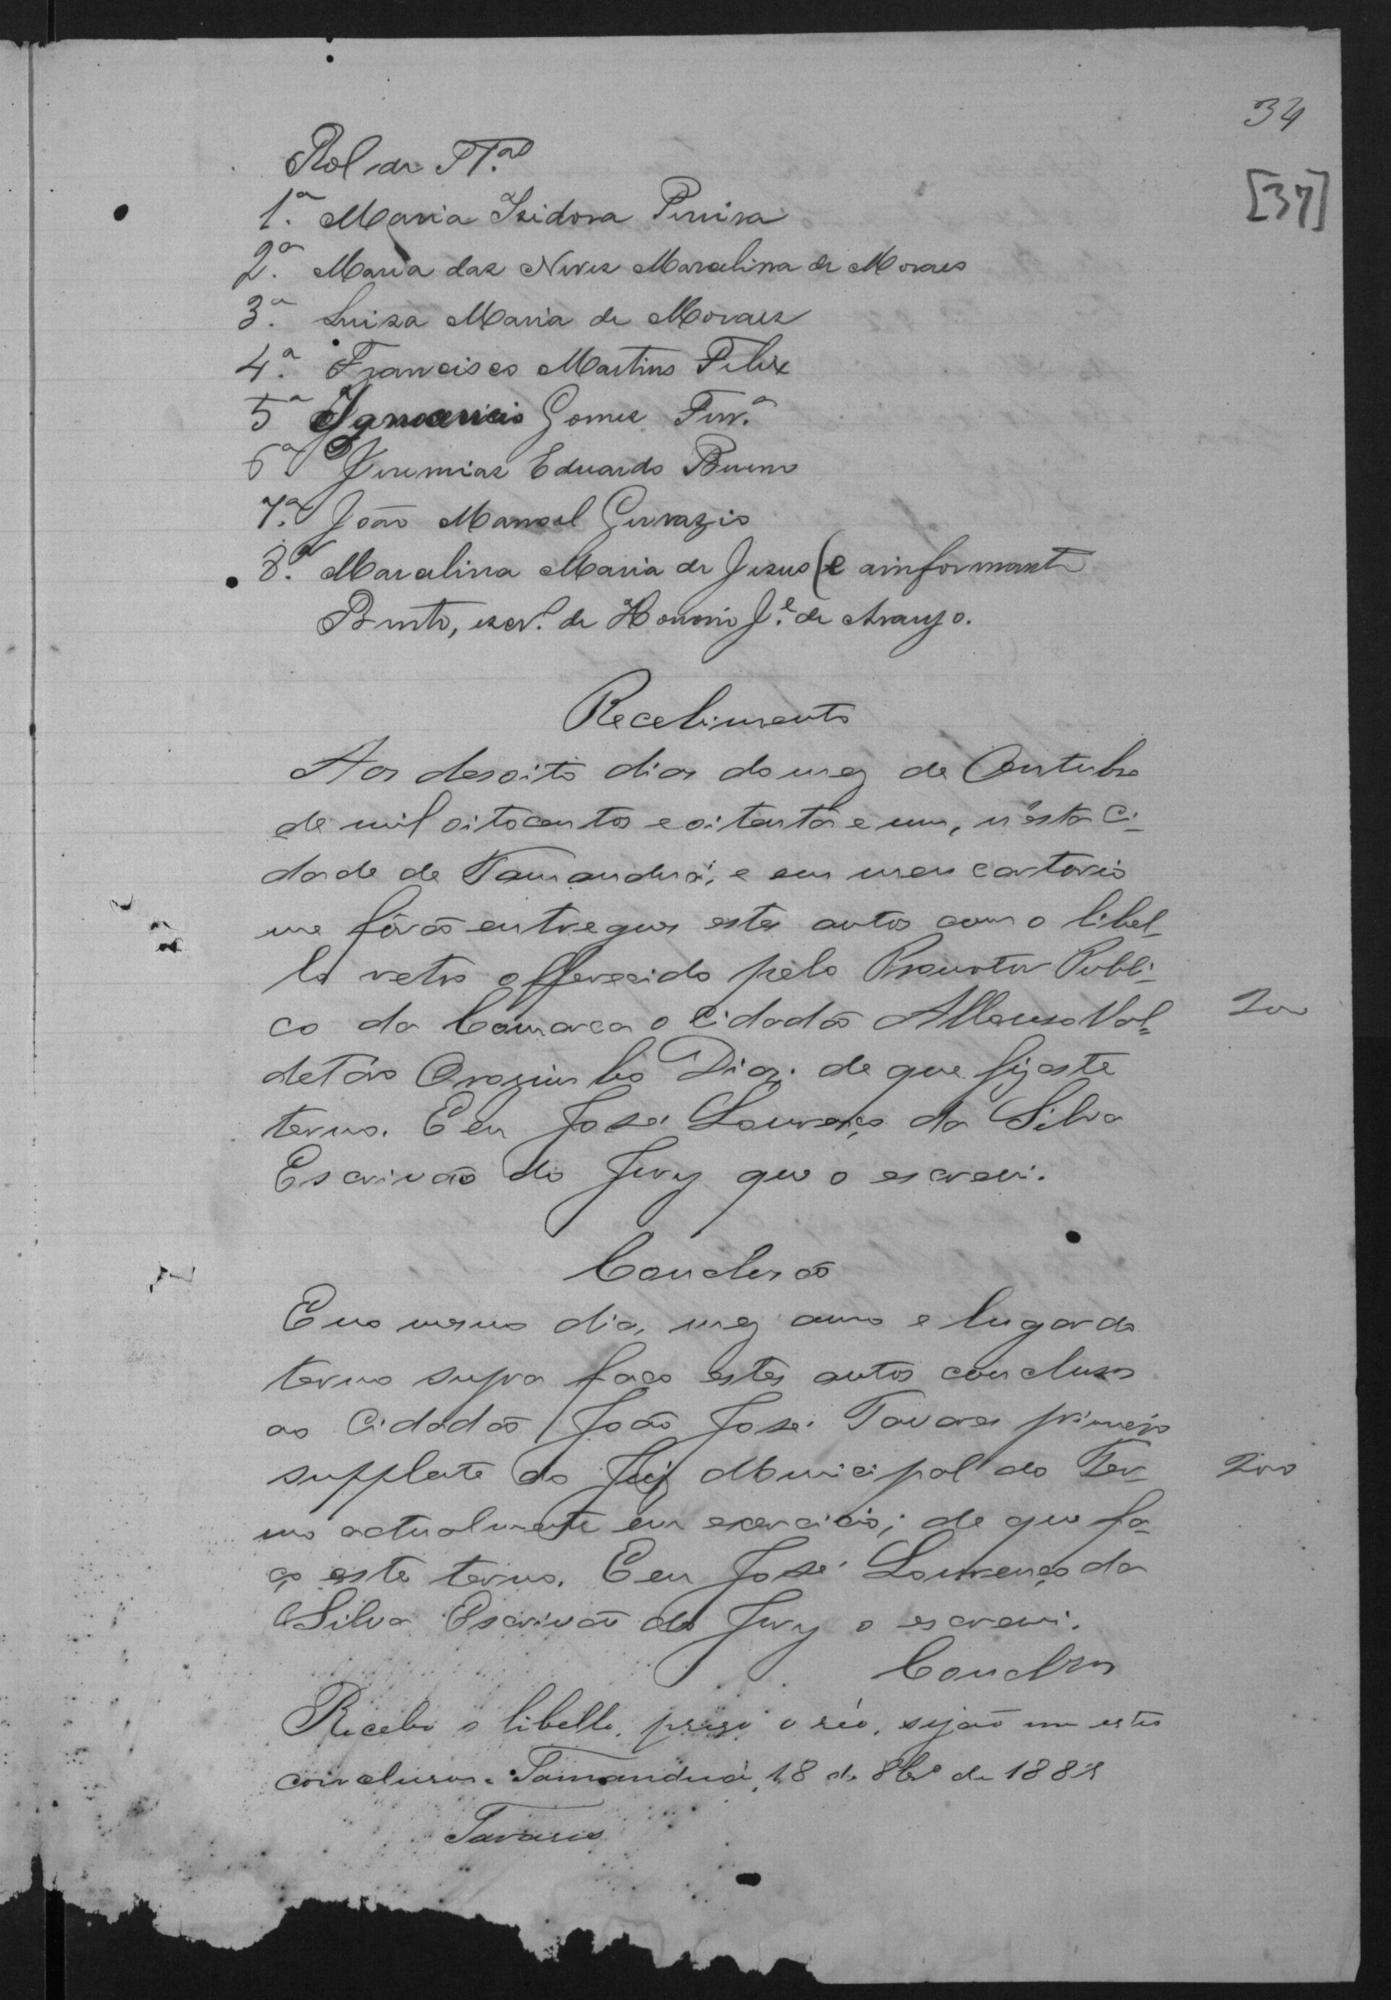 34
[37]
Rol de TT.as
1.a Maria Izidora Pereira
2.a Maria das Neves Marcelina de Moraes
3.a Luiza Maria de Moraes
4.a Francisco Martins Felix
5.a Ignacio Gomes Ferr.a
6.a Jeremias Eduardo Bueno
7.a João Manoel Gervazio
8.a Marcelina Maria de Jesus (e a informante
Bento, escr.o de Honorio J.e de Araujo.
Recebimento
Aos desoito dias do mez de Outubro
de mil oitocentos e oitenta e um, n'esta Ci-
dade de Tamanduá, e em meu cartorio
me fôrão entregues estes autos com o libel-
lo retro offerecido pelo Promotor Publi-
co da Comarca o Cidadão Affonso Val-
detáro Orozimbo Dias; de que fiz este
termo. E eu José Lourenço da Silva
Escrivão do Jury que o escrevi.
200
Conclusão
E no mesmo dia, mez anno e lugar do
termo supra faço estes autos conclusos
ao Cidadão João José Tavares primeiro
supplente do Juiz Municipal do Ter-
mo actualmente em exercicio; de que fa-
ço este termo. E eu José Lourenço da
Silva Escrivão do Jury o escrevi.
200
Concl.os
Recebo o libello, preso o réo, sejão me estes
conclusos. Tamanduá, 18 de 8br.o de 1881
Tavares